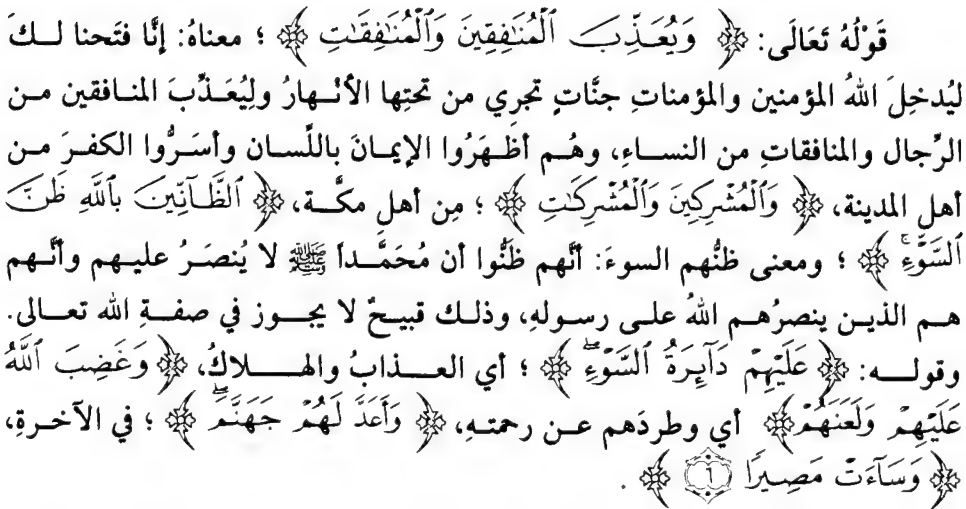 قَوْلُهُ تَعَالَى: ﴿ وَيُعَذِّبَ ٱلْمُنَٰفِقِينَ وَٱلْمُنَٰفِقَٰتِ ﴾ ؛ معناهُ: إنَّا فتَحنا لـكَ
ليُدخِلَ اللهُ المؤمنين والمؤمناتِ جنَّاتٍ تجرِي من تحتِها الأنْـهارُ ولِيُعَـذِّبَ المنـافقين مـن
الرِّجال والمنافقاتِ من النســاءِ، وهُـم أظْـهَرُوا الإيمـانَ باللِّسـان وأسَـرُّوا الكفـرَ مـن
أهلِ المدينة، ﴿ وَٱلْمُشْرِكِينَ وَٱلْمُشْرِكَٰتِ ﴾ ؛ مِن أهلِ مكَّـة، ﴿ ٱلظَّآنِّينَ بِٱللَّهِ ظَنَّ
ٱلسَّوْءِۚ ﴾ ؛ ومعنى ظنُّهم السوءَ: أنَّهم ظَنُّوا أن مُحَمَّـداً ﷺ لا يُنصَـرُ عليـهم وأنَّـهم
هـم الذيـن ينصرُهـم اللهُ علـى رسـولهِ، وذلـك قبيـحٌ لا يجـوز في صفـةِ الله تعـالى.
وقولـــه: ﴿ عَلَيْهِمْ دَآئِرَةُ ٱلسَّوْءِۖ ﴾ ؛ أي العــذابُ والهـــلاكُ، ﴿ وَغَضِبَ ٱللَّهُ
عَلَيْهِمْ وَلَعَنَهُمْ﴾ أي وطردَهم عـن رحمتـهِ، ﴿ وَأَعَدَّ لَهُمْ جَهَنَّمَۖ ﴾ ؛ في الآخـرةِ،
﴿ وَسَآءَتْ مَصِيرًا ٦ ﴾ .